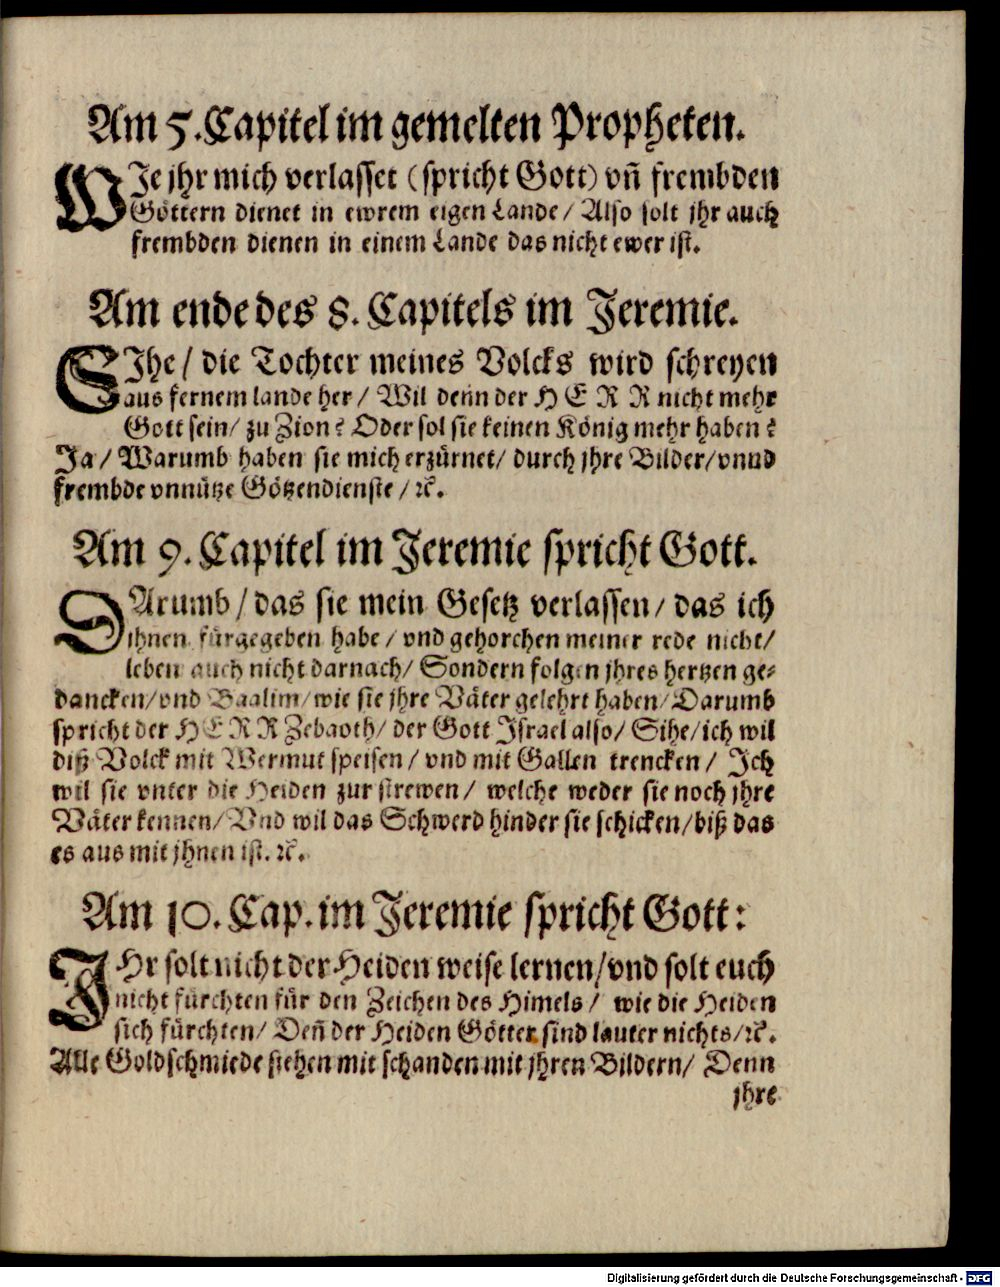 Am 5. Capitel im gemelten Propheten.
WJe jhr mich verlasset (spricht Gott) vñ frembden
Göttern dienet in ewrem eigen Lande / Also solt jhr auch
frembden dienen in einem Lande das nicht ewer ist.
Am ende des 8. Capitels im Jeremie.
SJhe / die Tochter meines Volcks wird schreyen
aus fernem lande her / Wil denn der HERR nicht mehr
Gott sein / zu Zion? Oder sol sie keinen König mehr haben?
Ja / Warumb haben sie mich erzürnet / durch jhre Bilder / vnnd
frembde vnnütze Götzendienste / ꝛc.
Am 9. Capitel im Jeremie spricht Gott.
DArumb / das sie mein Gesetz verlassen / das ich
ihnen fürgegeben habe / vnd gehorchen meiner rede nicht /
leben auch nicht darnach / Sondern folgen jhres hertzen ge-
dancken / vnd Baalim / wie sie jhre Väter gelehrt haben / Darumb
spricht der HERR Zebaoth / der Gott Jsrael also / Sihe / ich wil
diß Volck mit Wermut speisen / vnd mit Gallen trencken / Jch
wil sie vnter die Heiden zur strewen / welche weder sie noch jhre
Väter kennen / Vnd wil das Schwerd hinder sie schicken / biß das
es aus mit jhnen ist. ꝛc.
Am 10. Cap. im Jeremie spricht Gott:
JHr solt nicht der Heiden weise lernen / vnd solt euch
nicht fürchten für den Zeichen des Himels / wie die Heiden
sich fürchten / Deñ der Heiden Götter sind lauter nichts / ꝛc.
Alle Goldschmiede stehen mit schanden mit jhren Bildern / Denn
jhre
Digitalisierung gefördert durch die Deutsche Forschungsgemeinschaft - DFG